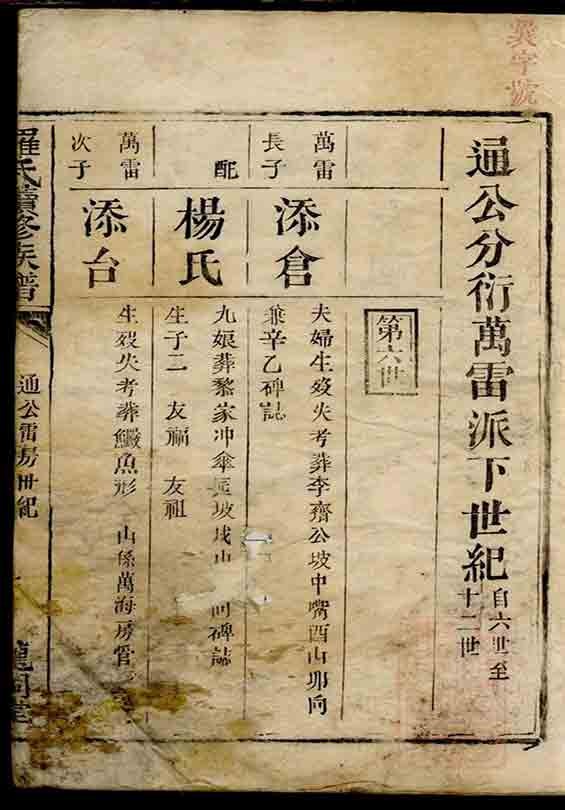 吳字號
通公分衍萬雷派下世紀
自六世至
十二世
第六世
萬雷
長子
添倉
夫婦生歿失考葬李齊公坡中嘴酉山卯向
兼辛乙碑誌
配
楊氏
九娘葬黎家冲傘 坡戌山 向碑誌
生子二 友福 友祖
萬雷
次子
添台
生歿失考葬鱖魚形 山係萬海房管
羅氏續修族譜
通公雷房世紀